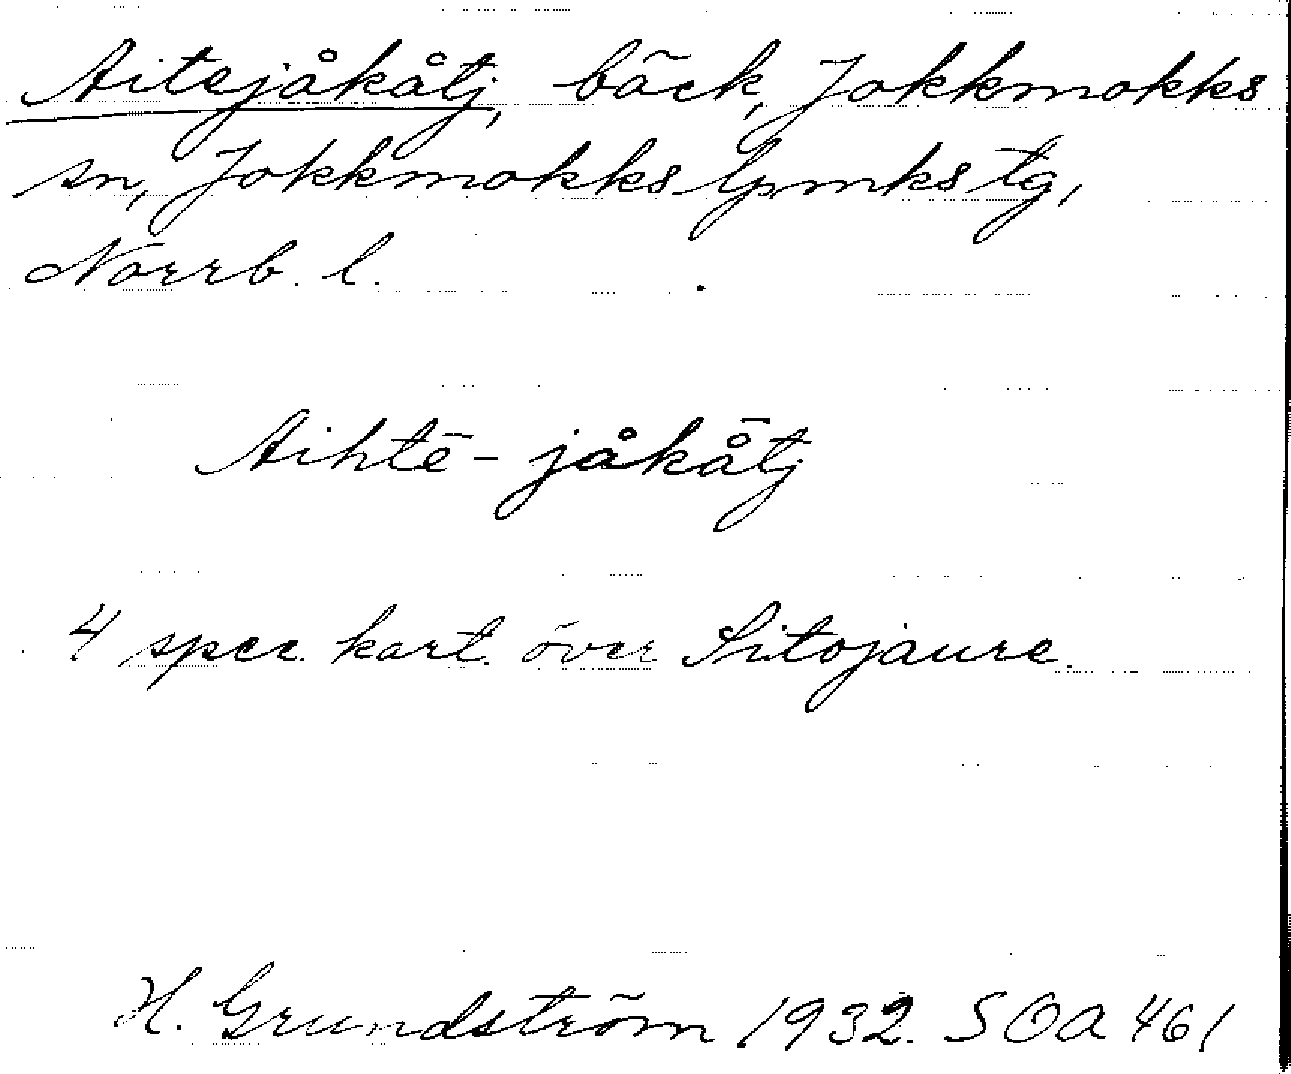 Aitejåkåtj, bäck, Jokkmokks
sn, Jokkmokks lpmks tg,
Norrb. l.
Aihtē-jåkå̄tj
4 spec. kart. över Sitojaure.
H. Grundström 1932. SOA 461